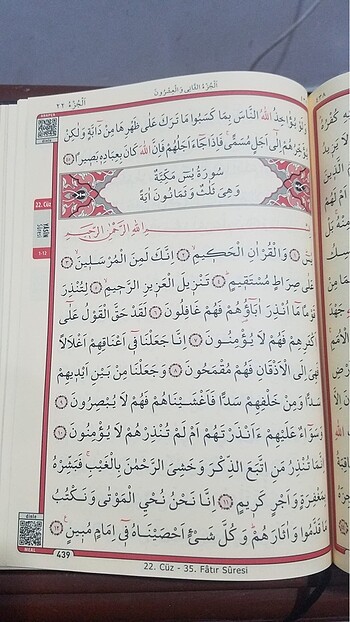 اَلْجُزْءُ الثَّانِى وَالْعِشْرُونَ
اَلْجُزْءُ ٢٢
وَلَوْ يُؤَاخِذُ اللّٰهُ النَّاسَ بِمَا كَسَبُوا مَا تَرَكَ عَلٰى ظَهْرِهَا مِنْ دَٓابَّةٍ وَلٰكِنْ
يُؤَخِّرُهُمْ اِلٰٓى اَجَلٍ مُسَمًّىۚ فَاِذَا جَٓاءَ اَجَلُهُمْ فَاِنَّ اللّٰهَ كَانَ بِعِبَادِهٖ بَصٖيرًا ﴿٤٥﴾
سُورَةُ يٰسٓ مَكِّيَّةٌ
وَهِىَ ثَلٰثٌ وَثَمَانُونَ اٰيَةً
بِسْمِ اللّٰهِ الرَّحْمٰنِ الرَّحٖيمِ
يٰسٓ ﴿١﴾ وَالْقُرْاٰنِ الْحَكٖيمِ ﴿٢﴾ اِنَّكَ لَمِنَ الْمُرْسَلٖينَ ﴿٣﴾
عَلٰى صِرَاطٍ مُسْتَقٖيمٍ ﴿٤﴾ تَنْزٖيلَ الْعَزٖيزِ الرَّحٖيمِ ﴿٥﴾ لِتُنْذِرَ
قَوْمًا مَٓا اُنْذِرَ اٰبَٓاؤُ۬هُمْ فَهُمْ غَافِلُونَ ﴿٦﴾ لَقَدْ حَقَّ الْقَوْلُ عَلٰٓى
اَكْثَرِهِمْ فَهُمْ لَا يُؤْمِنُونَ ﴿٧﴾ اِنَّا جَعَلْنَا فٖٓى اَعْنَاقِهِمْ اَغْلَالًا
فَهِىَ اِلَى الْاَذْقَانِ فَهُمْ مُقْمَحُونَ ﴿٨﴾ وَجَعَلْنَا مِنْ بَيْنِ اَيْدٖيهِمْ
سَدًّا وَمِنْ خَلْفِهِمْ سَدًّا فَاَغْشَيْنَاهُمْ فَهُمْ لَا يُبْصِرُونَ ﴿٩﴾
وَسَوَٓاءٌ عَلَيْهِمْ ءَاَنْذَرْتَهُمْ اَمْ لَمْ تُنْذِرْهُمْ لَا يُؤْمِنُونَ ﴿١٠﴾
اِنَّمَا تُنْذِرُ مَنِ اتَّبَعَ الذِّكْرَ وَخَشِىَ الرَّحْمٰنَ بِالْغَيْبِۚ فَبَشِّرْهُ
بِمَغْفِرَةٍ وَاَجْرٍ كَرٖيمٍ ﴿١١﴾ اِنَّا نَحْنُ نُحْيِ الْمَوْتٰى وَنَكْتُبُ
مَا قَدَّمُوا وَاٰثَارَهُمْۜ وَكُلَّ شَىْءٍ اَحْصَيْنَاهُ فٖٓى اِمَامٍ مُبٖينٍ ﴿١٢﴾
22. Cüz
YASİN
SÛRESİ
1-12
dinle
MEAL
439
22. Cüz - 35. Fâtır Sûresi